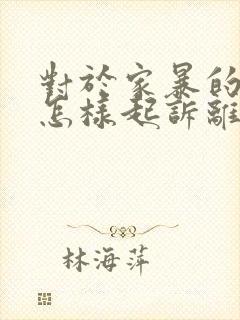 對於家暴的
怎樣起訴離
林海萍